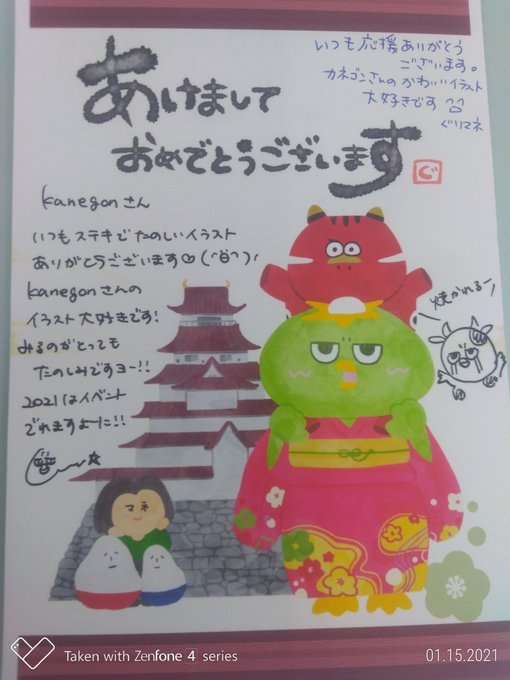 あけまして
おめでとうございます
ぐ
いつも応援ありがとう
ございます。
カネゴンさんのかわいいイラスト
大好きです
ぐりマネ
kanegonさん
いつもステキでたのしいイラスト
ありがとうございます♡(^θ^)
kanegonさんの
イラスト大好きです!
みるのがとっても
たのしみですヨー!!
2021はイベント
でれますように!!
焼かれるー
マネ
Taken with Zenfone 4 series
01.15.2021